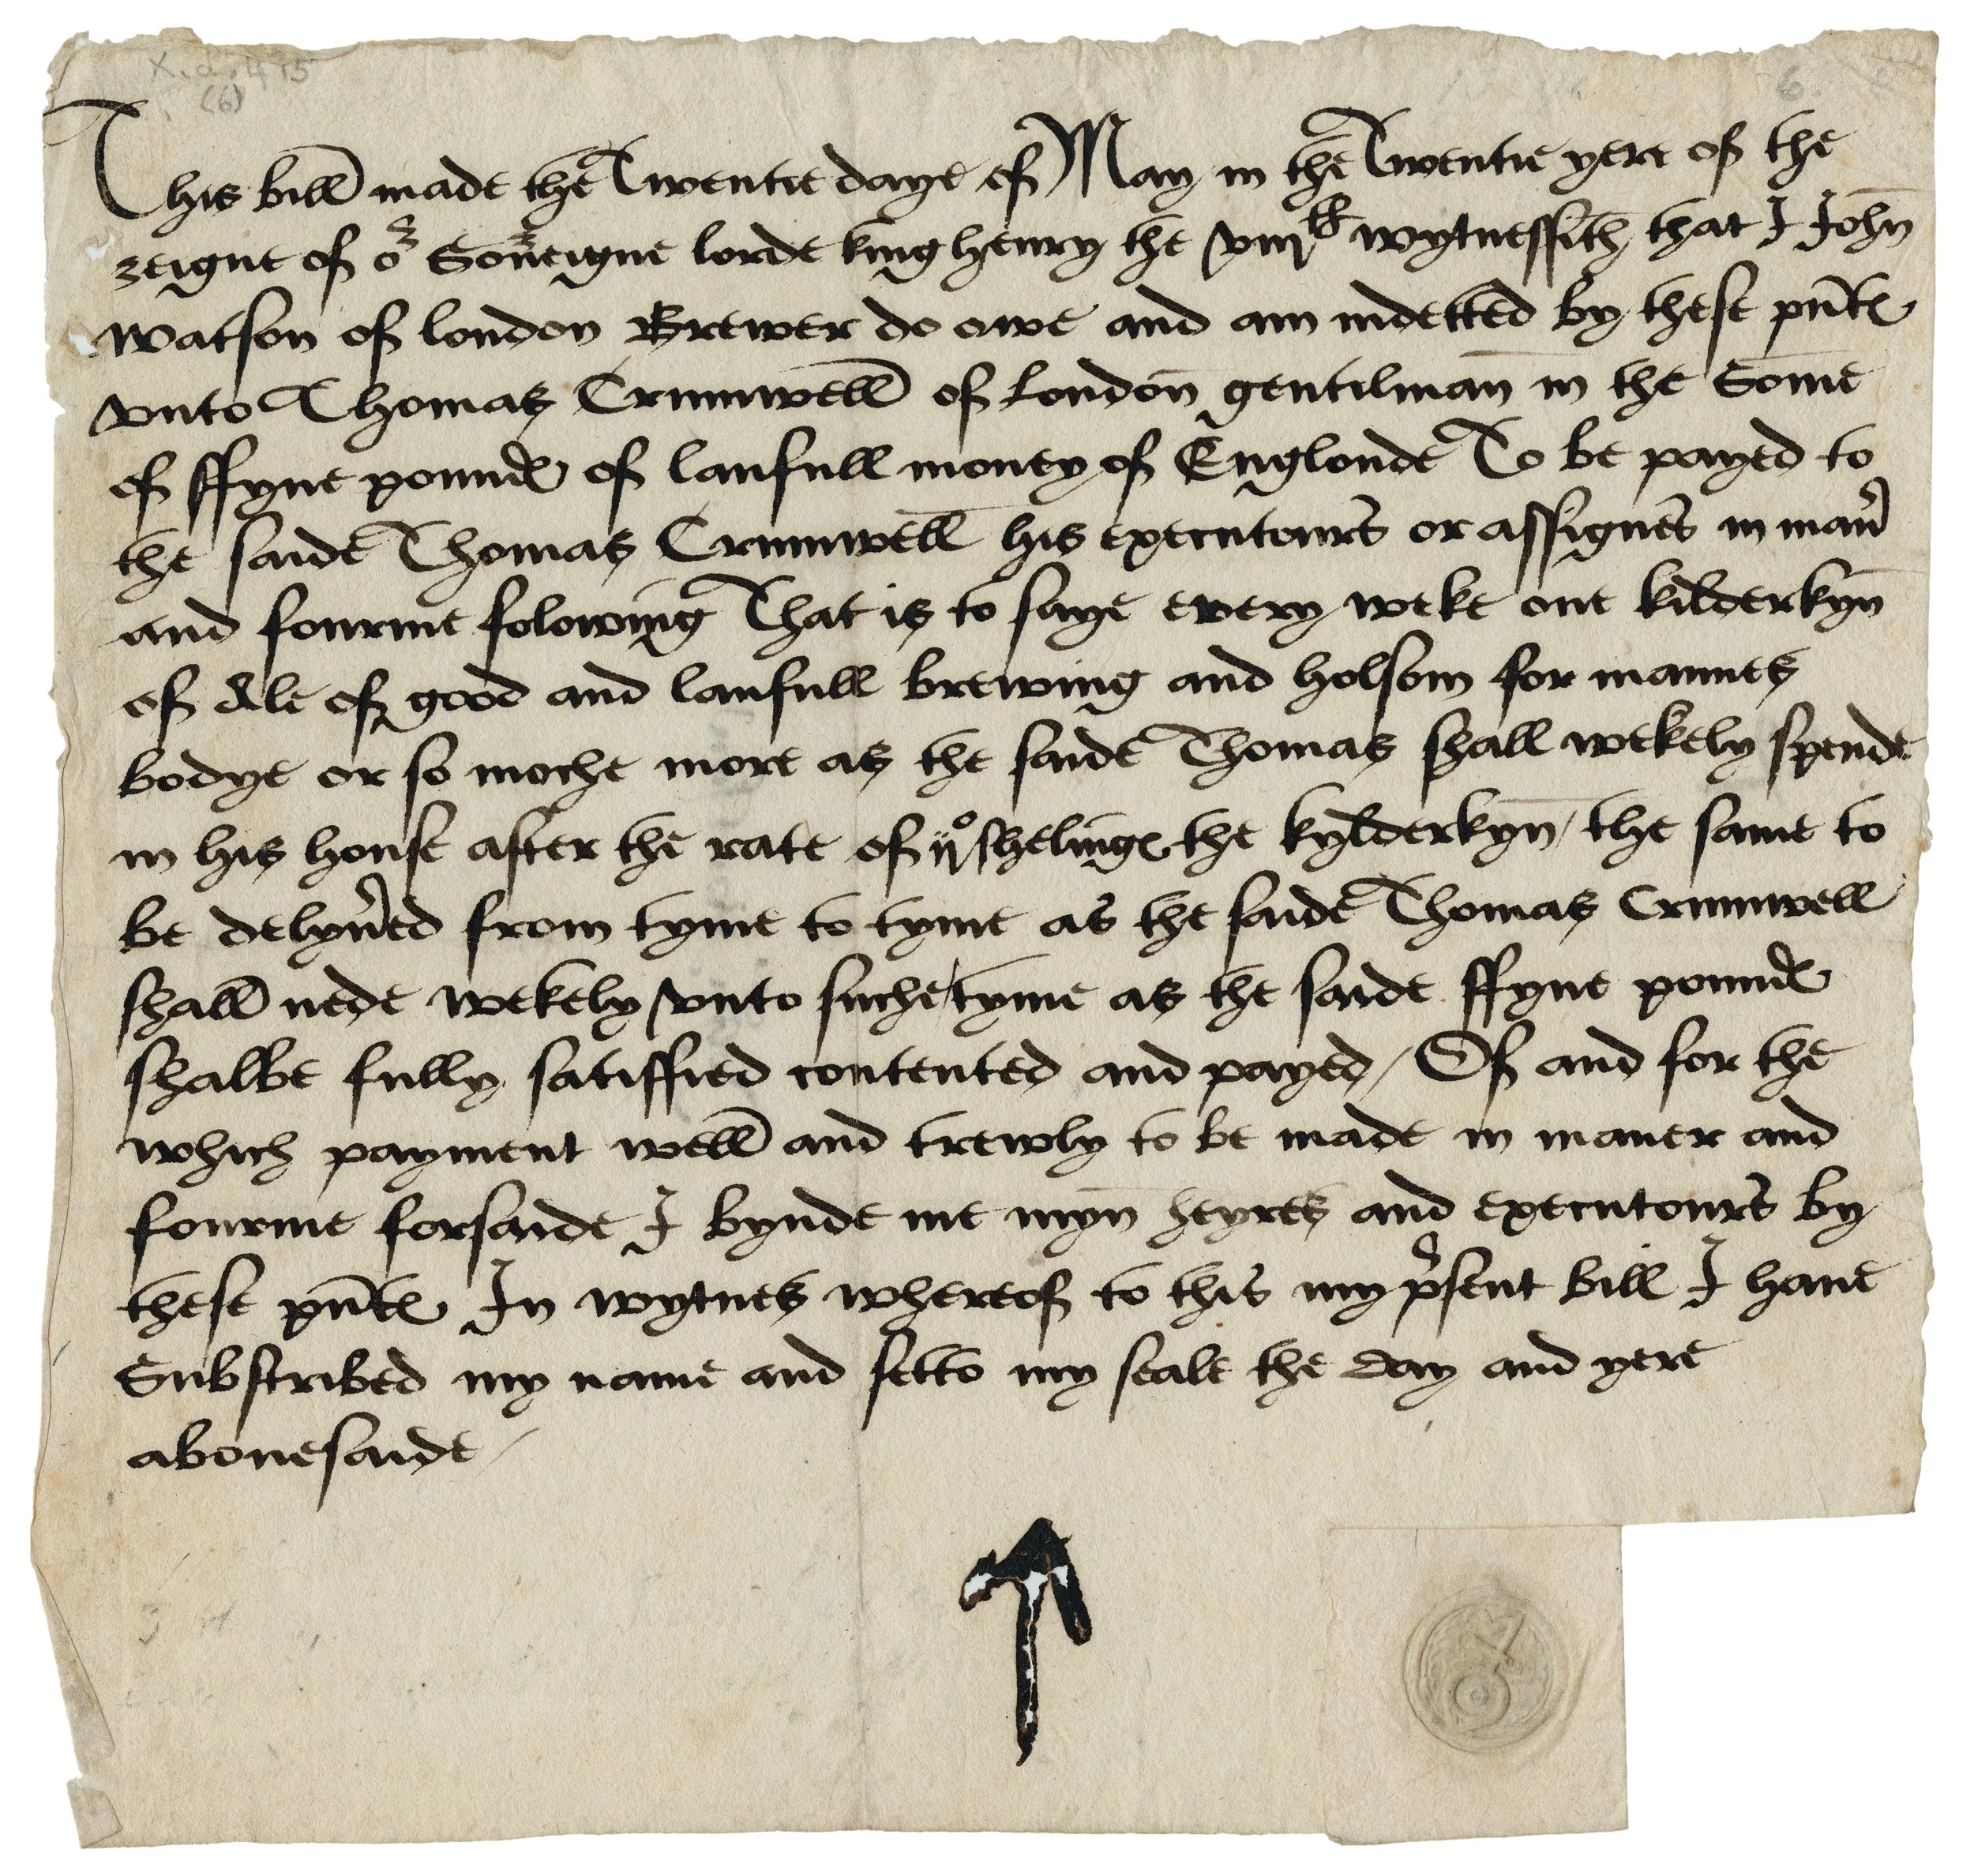 X.d.415
(6)
6.
This bill made the Twentie daye of May in the Twentie yere of the
reigne of or Souereigne lorde king henry the viijth wytnessith that I John
watson of london Brewer do owe and am indetted by these pntes
vnto Thomas Crumwell of london gentilman in the Some
of ffyue poundes of laufull money of Englonde To be payed to
the saide Thomas Crumwell his executours or assignes in maner
and fourme folowing That is to saye euery weke one kilderkyn
of Ale of good and laufull brewing and holsom for mannes
bodye or so moche more as the saide Thomas shall wekely spende
in his house after the rate of ijo shelinges the kylderkyn / the same to
be delyuered from tyme to tyme as the saide Thomas Crumwell
shall nede wekely vnto suche tyme as the saide ffyue poundes
shalbe fully satiffied contented and payed / Of and for the
which payment well and trewly to be made in maner and
fourme forsaide I bynde me myn heyres and executours by
these pntes In wytnes whereof to this my present bill I haue
Subscribed my name and setto my seale the day and yere
abouesaide /